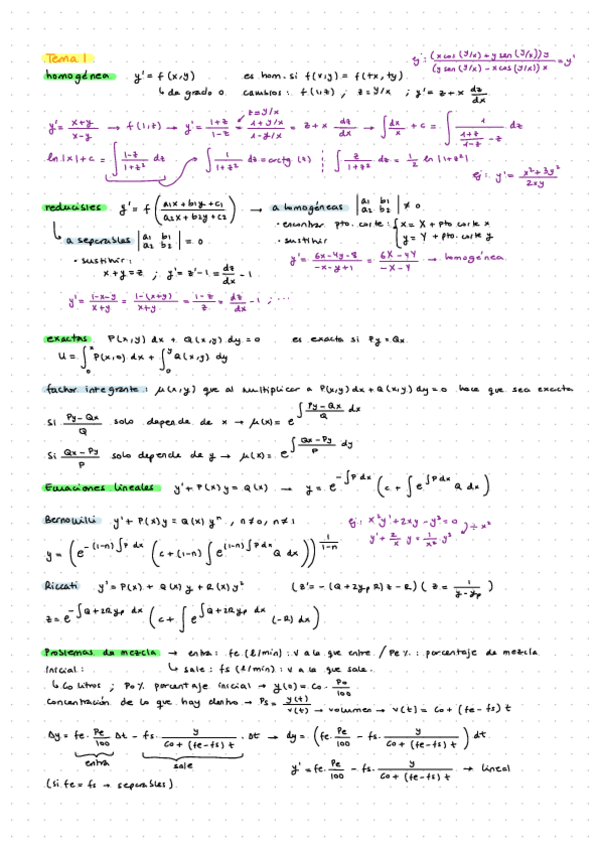 Tema 1
homogénea y' = f(x,y) es hom. si f(x,y) = f(tx,ty)
↳ de grado 0. cambios: f(1,z); z = y/x; y' = z + x dz/dx
ej: y' = (x cos(y/x) + y sen(y/x))y / (y sen(y/x) - x cos(y/x))x = y'
y' = (x+y)/(x-y) → f(1,z) → y' = (1+z)/(1-z) = (1+y/x)/(1-y/x) = z + x dz/dx → ∫dx/x + c = ∫ 1/((1+z)/(1-z) - z) dz
z = y/x
ln|x| + c = ∫ (1-z)/(1+z²) dz → ∫ 1/(1+z²) dz = arctg(z) ; ∫ z/(1+z²) dz = 1/2 ln|1+z²|
ej: y' = (x²+3y²)/(2xy)
reducibles y' = f((a1x+b1y+c1)/(a2x+b2y+c2)) → a homogéneas |a1 b1 a2 b2| ≠ 0
· encontrar pto. corte: { x = X + pto. corte x
· sustituir y = Y + pto. corte y
y' = (6x-4y-8)/(-x-y+1) = (6X-4Y)/(-X-Y) → homogénea
↳ a separables |a1 b1 a2 b2| = 0
· sustituir:
x+y = z ; y' = z'-1 = dz/dx - 1
y' = (1-x-y)/(x+y) = (1-(x+y))/(x+y) = (1-z)/z = dz/dx - 1 ; ...
exactas P(x,y) dx + Q(x,y) dy = 0 es exacta si Py = Qx
U = ∫₀ˣ P(x,0) dx + ∫₀ʸ Q(x,y) dy
factor integrante: μ(x,y) que al multiplicar a P(x,y)dx + Q(x,y)dy = 0 hace que sea exacta
Si (Py-Qx)/Q solo depende de x → μ(x) = e^∫(Py-Qx)/Q dx
Si (Qx-Py)/P solo depende de y → μ(x) = e^∫(Qx-Py)/P dy
Ecuaciones lineales y' + P(x)y = Q(x) → y = e^-∫P dx (c + ∫ e^∫P dx Q dx)
Bernouilli y' + P(x)y = Q(x) yⁿ , n≠0, n≠1 ej: x²y' + 2xy - y³ = 0
y' + 2/x y = 1/x² y³ ) ÷ x²
y = (e^-(1-n)∫P dx (c + (1-n) ∫ e^(1-n)∫P dx Q dx))^1/(1-n)
Riccati y' = P(x) + Q(x)y + R(x)y² (z' = -(Q+2yp R)z - R) (z = 1/(y-yp))
z = e^-∫Q+2Ryp dx (c + ∫ e^∫Q+2Ryp dx (-R) dx)
Problemas de mezcla → entra: fe (l/min): v a la que entra / Pe %: porcentaje de mezcla
Inicial: ↳ sale: fs (l/min): v a la que sale.
↳ Co litros; Po% porcentaje inicial → y(0) = Co · Po/100
Concentración de lo que hay dentro → Ps = y(t)/v(t) → volumen → v(t) = Co + (fe-fs)t
Δy = fe · Pe/100 Δt - fs · y/(Co+(fe-fs)t) · Δt → dy = (fe · Pe/100 - fs · y/(Co+(fe-fs)t)) dt
entra sale
y' = fe · Pe/100 - fs · y/(Co+(fe-fs)t) → lineal
(si fe = fs → separables)